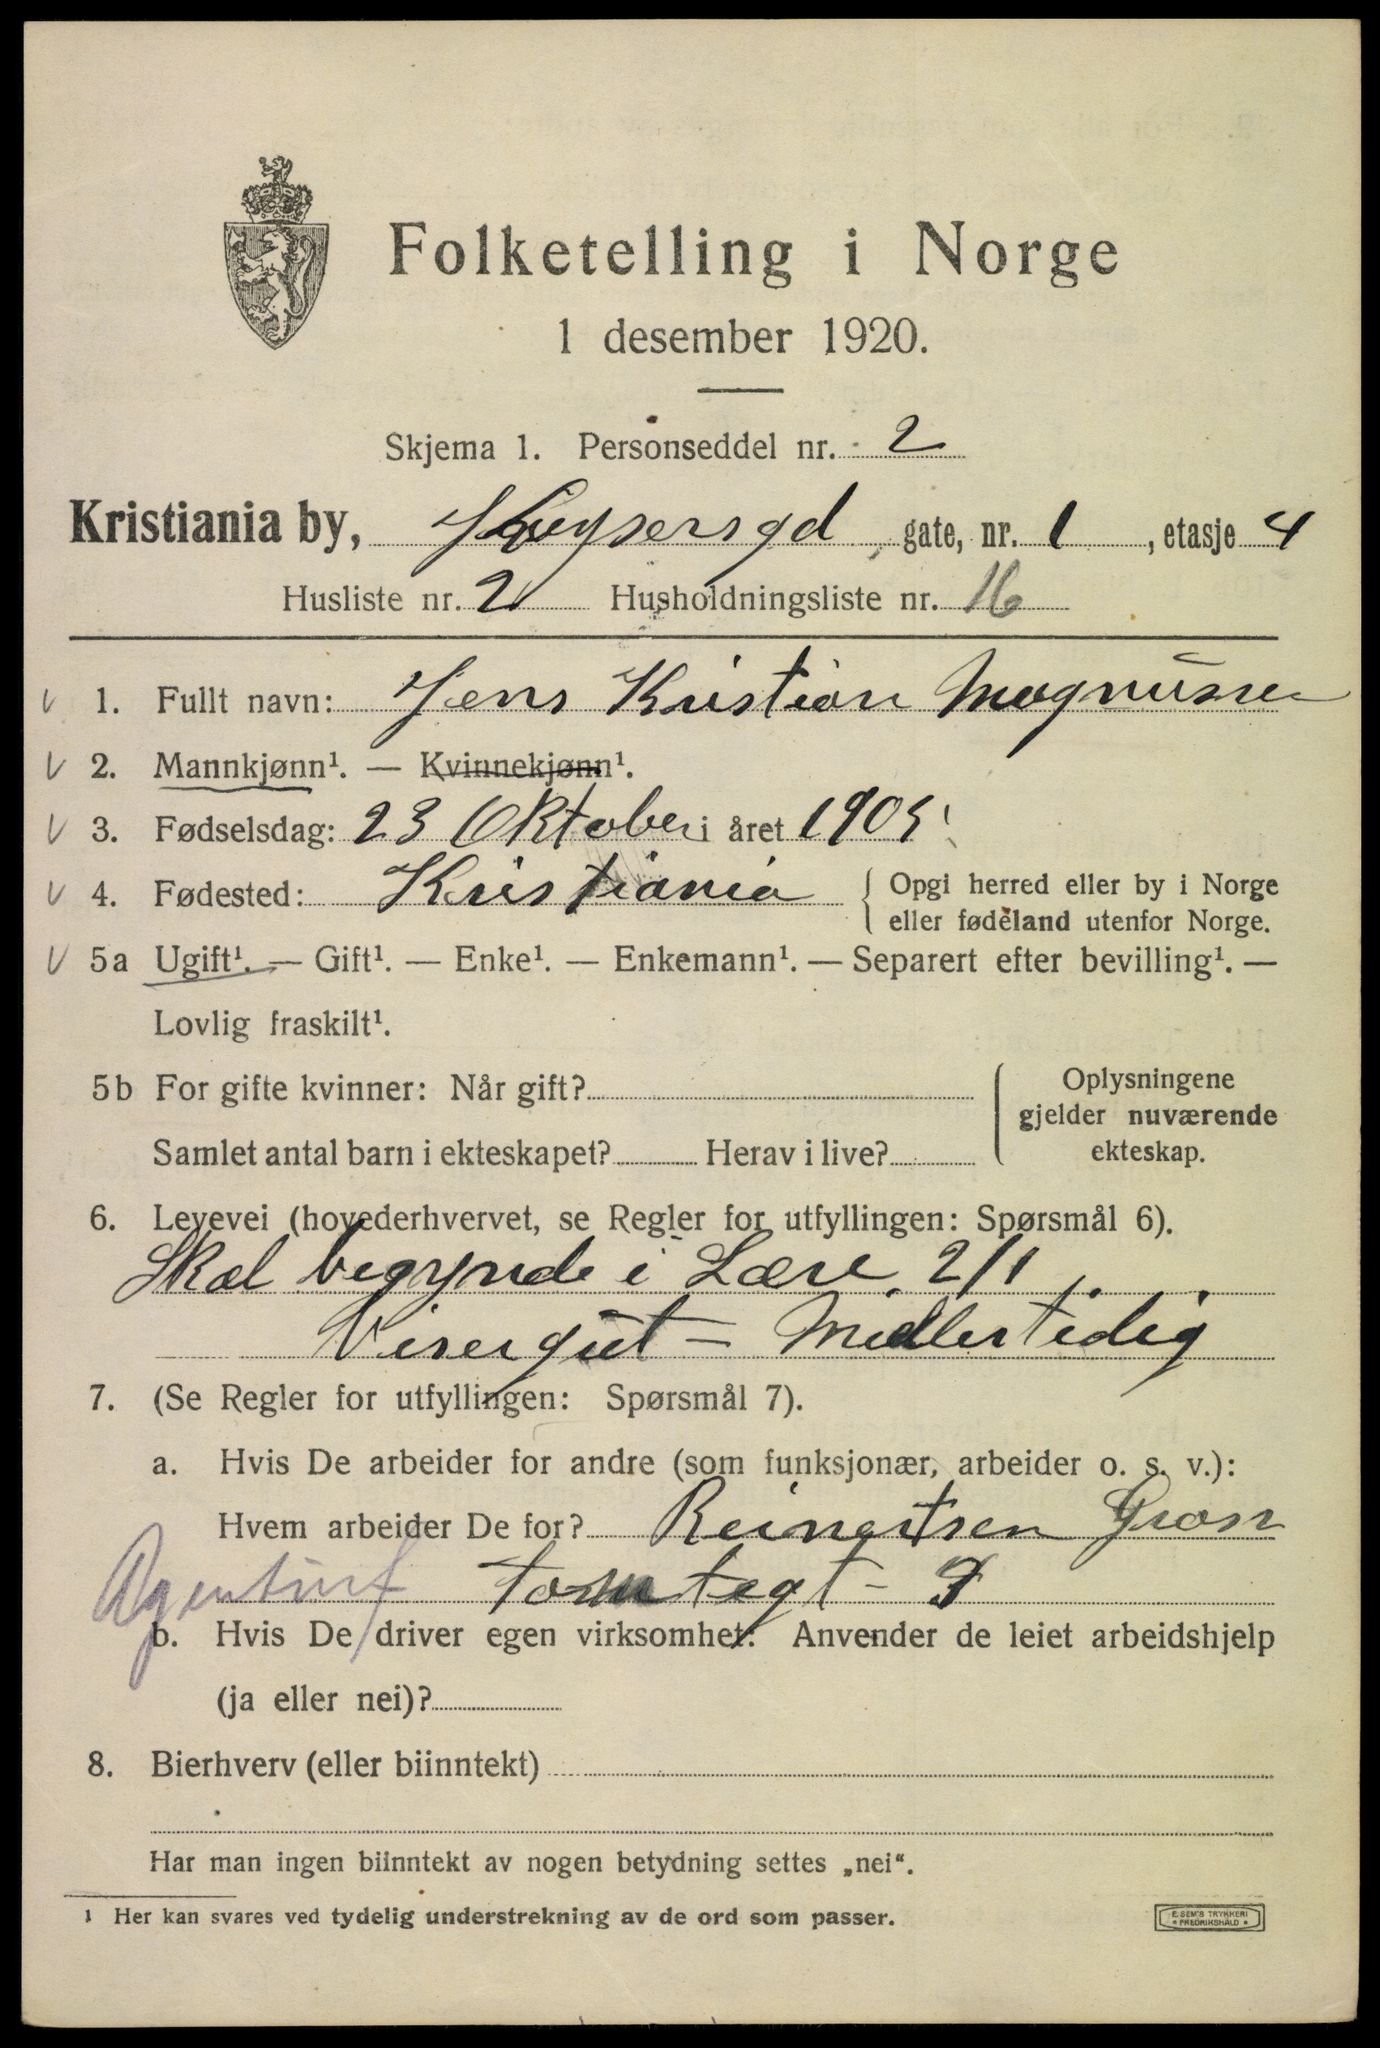 Folketelling i Norge
1 desember 1920.
Skjema 1. Personseddel nr. 2
Kristiania by, Keysersgd gate, nr. 1, etasje 4
Husliste nr. 2 Husholdningsliste nr. 16
v 1. Fullt navn: Jens Kristian Magnussen
v 2. Mannkjønn¹. — Kvinnekjønn¹.
v 3. Fødselsdag: 23 Oktober i året 1905
v 4. Fødested: Kristiania { Opgi herred eller by i Norge
eller fødeland utenfor Norge.
v 5a Ugift¹. — Gift¹. — Enke¹. — Enkemann¹. — Separert efter bevilling¹. —
Lovlig fraskilt¹.
5b For gifte kvinner: Når gift? { Oplysningene
gjelder nuværende
Samlet antal barn i ekteskapet? Herav i live? ekteskap.
6. Levevei (hovederhvervet, se Regler for utfyllingen: Spørsmål 6).
Skal begynde i Lære 2/1
Visergut = Midlertidig
7. (Se Regler for utfyllingen: Spørsmål 7).
a. Hvis De arbeider for andre (som funksjonær, arbeider o. s. v.):
Hvem arbeider De for? Reinertsen
Agenturf
b. Hvis De driver egen virksomhet: Anvender de leiet arbeidshjelp
(ja eller nei)?
8. Bierhverv (eller biinntekt)
Har man ingen biinntekt av nogen betydning settes „nei“.
1 Her kan svares ved tydelig understrekning av de ord som passer.
E. SEM'S TRYKKERI
* FREDRIKSHALD *